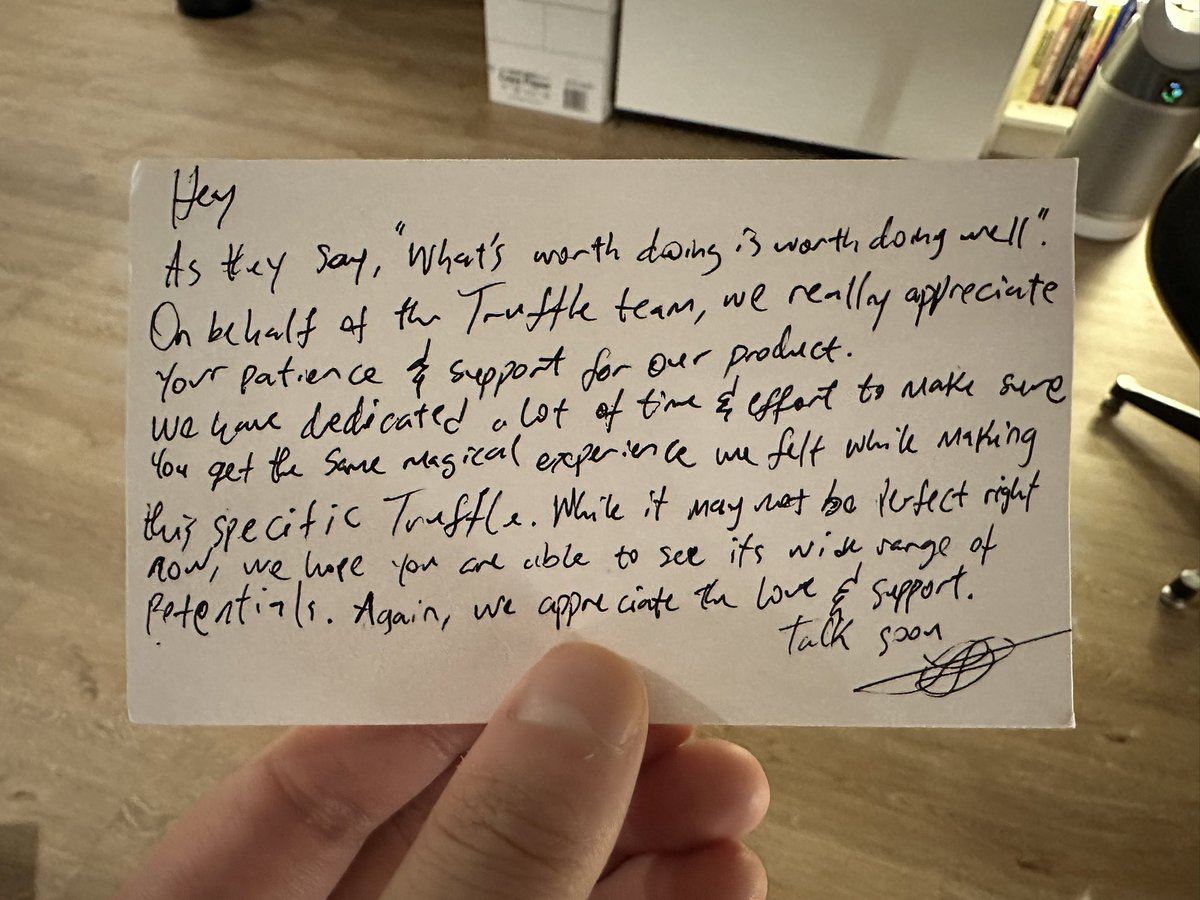 Hey
As they say, "What's worth doing is worth doing well".
On behalf of the Truffle team, we really appreciate
your patience & support for our product.
We have dedicated a lot of time & effort to make sure
you get the same magical experience we felt while making
this specific Truffle. While it may not be perfect right
now, we hope you are able to see its wide range of
potentials. Again, we appreciate the love & support.
Talk soon
Copy Paper